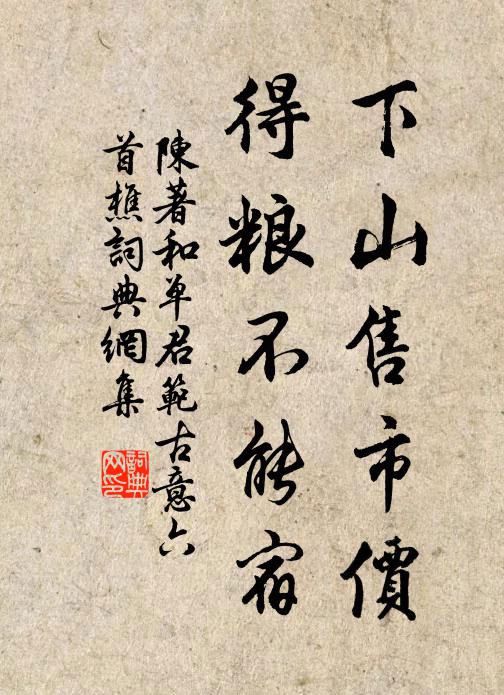 下山售市價
得粮不能宿
陳著和单君範古意六
首樵詞典網集
詞典
网印